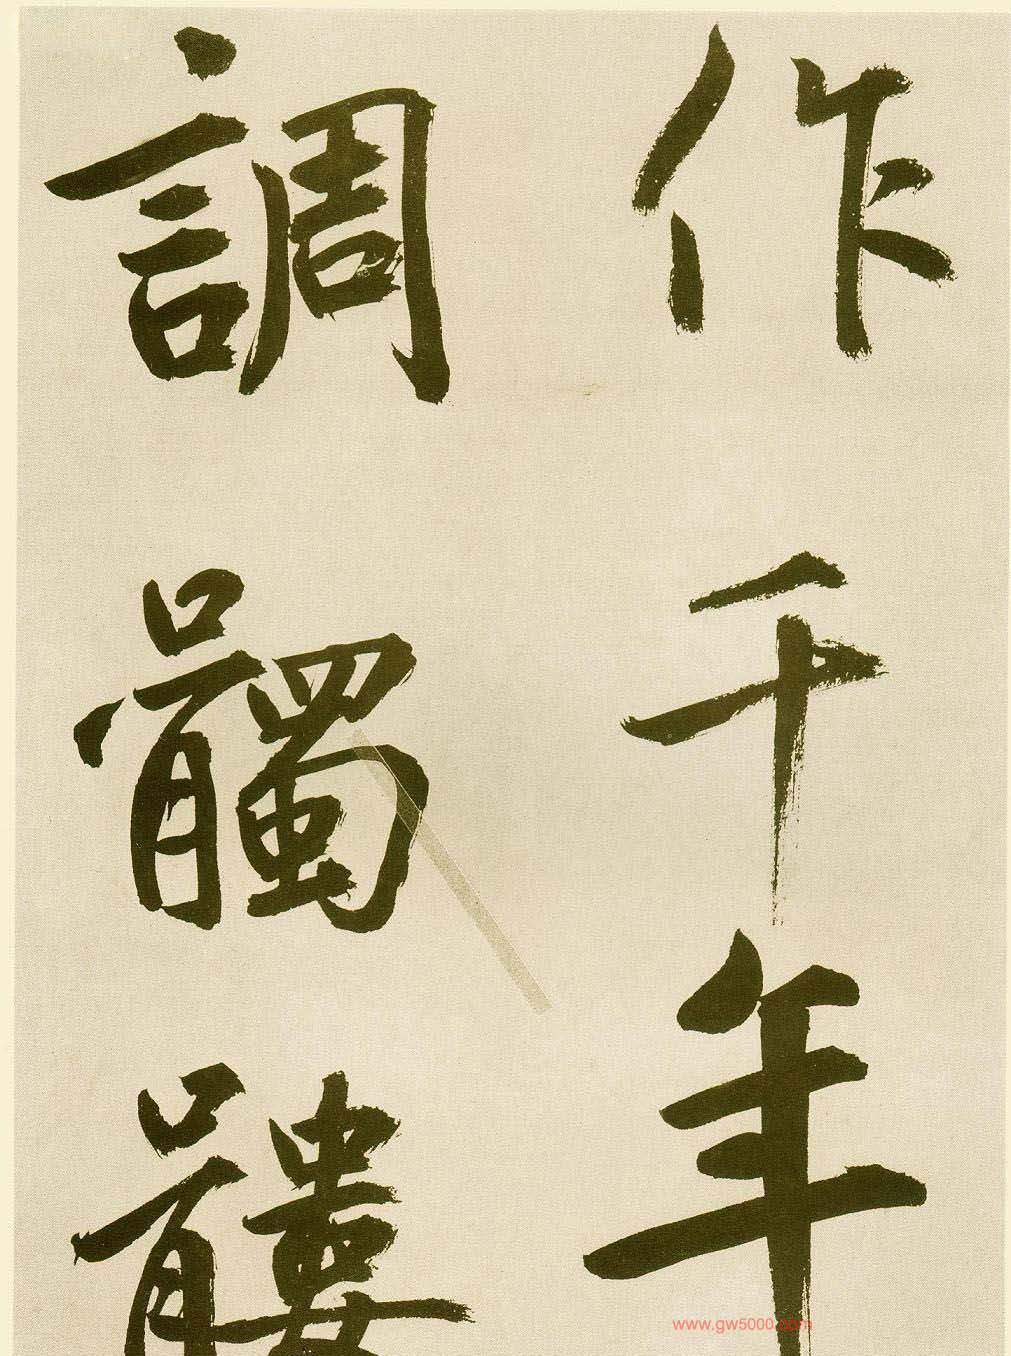 作千年
調髑髏
www.gw5000.com